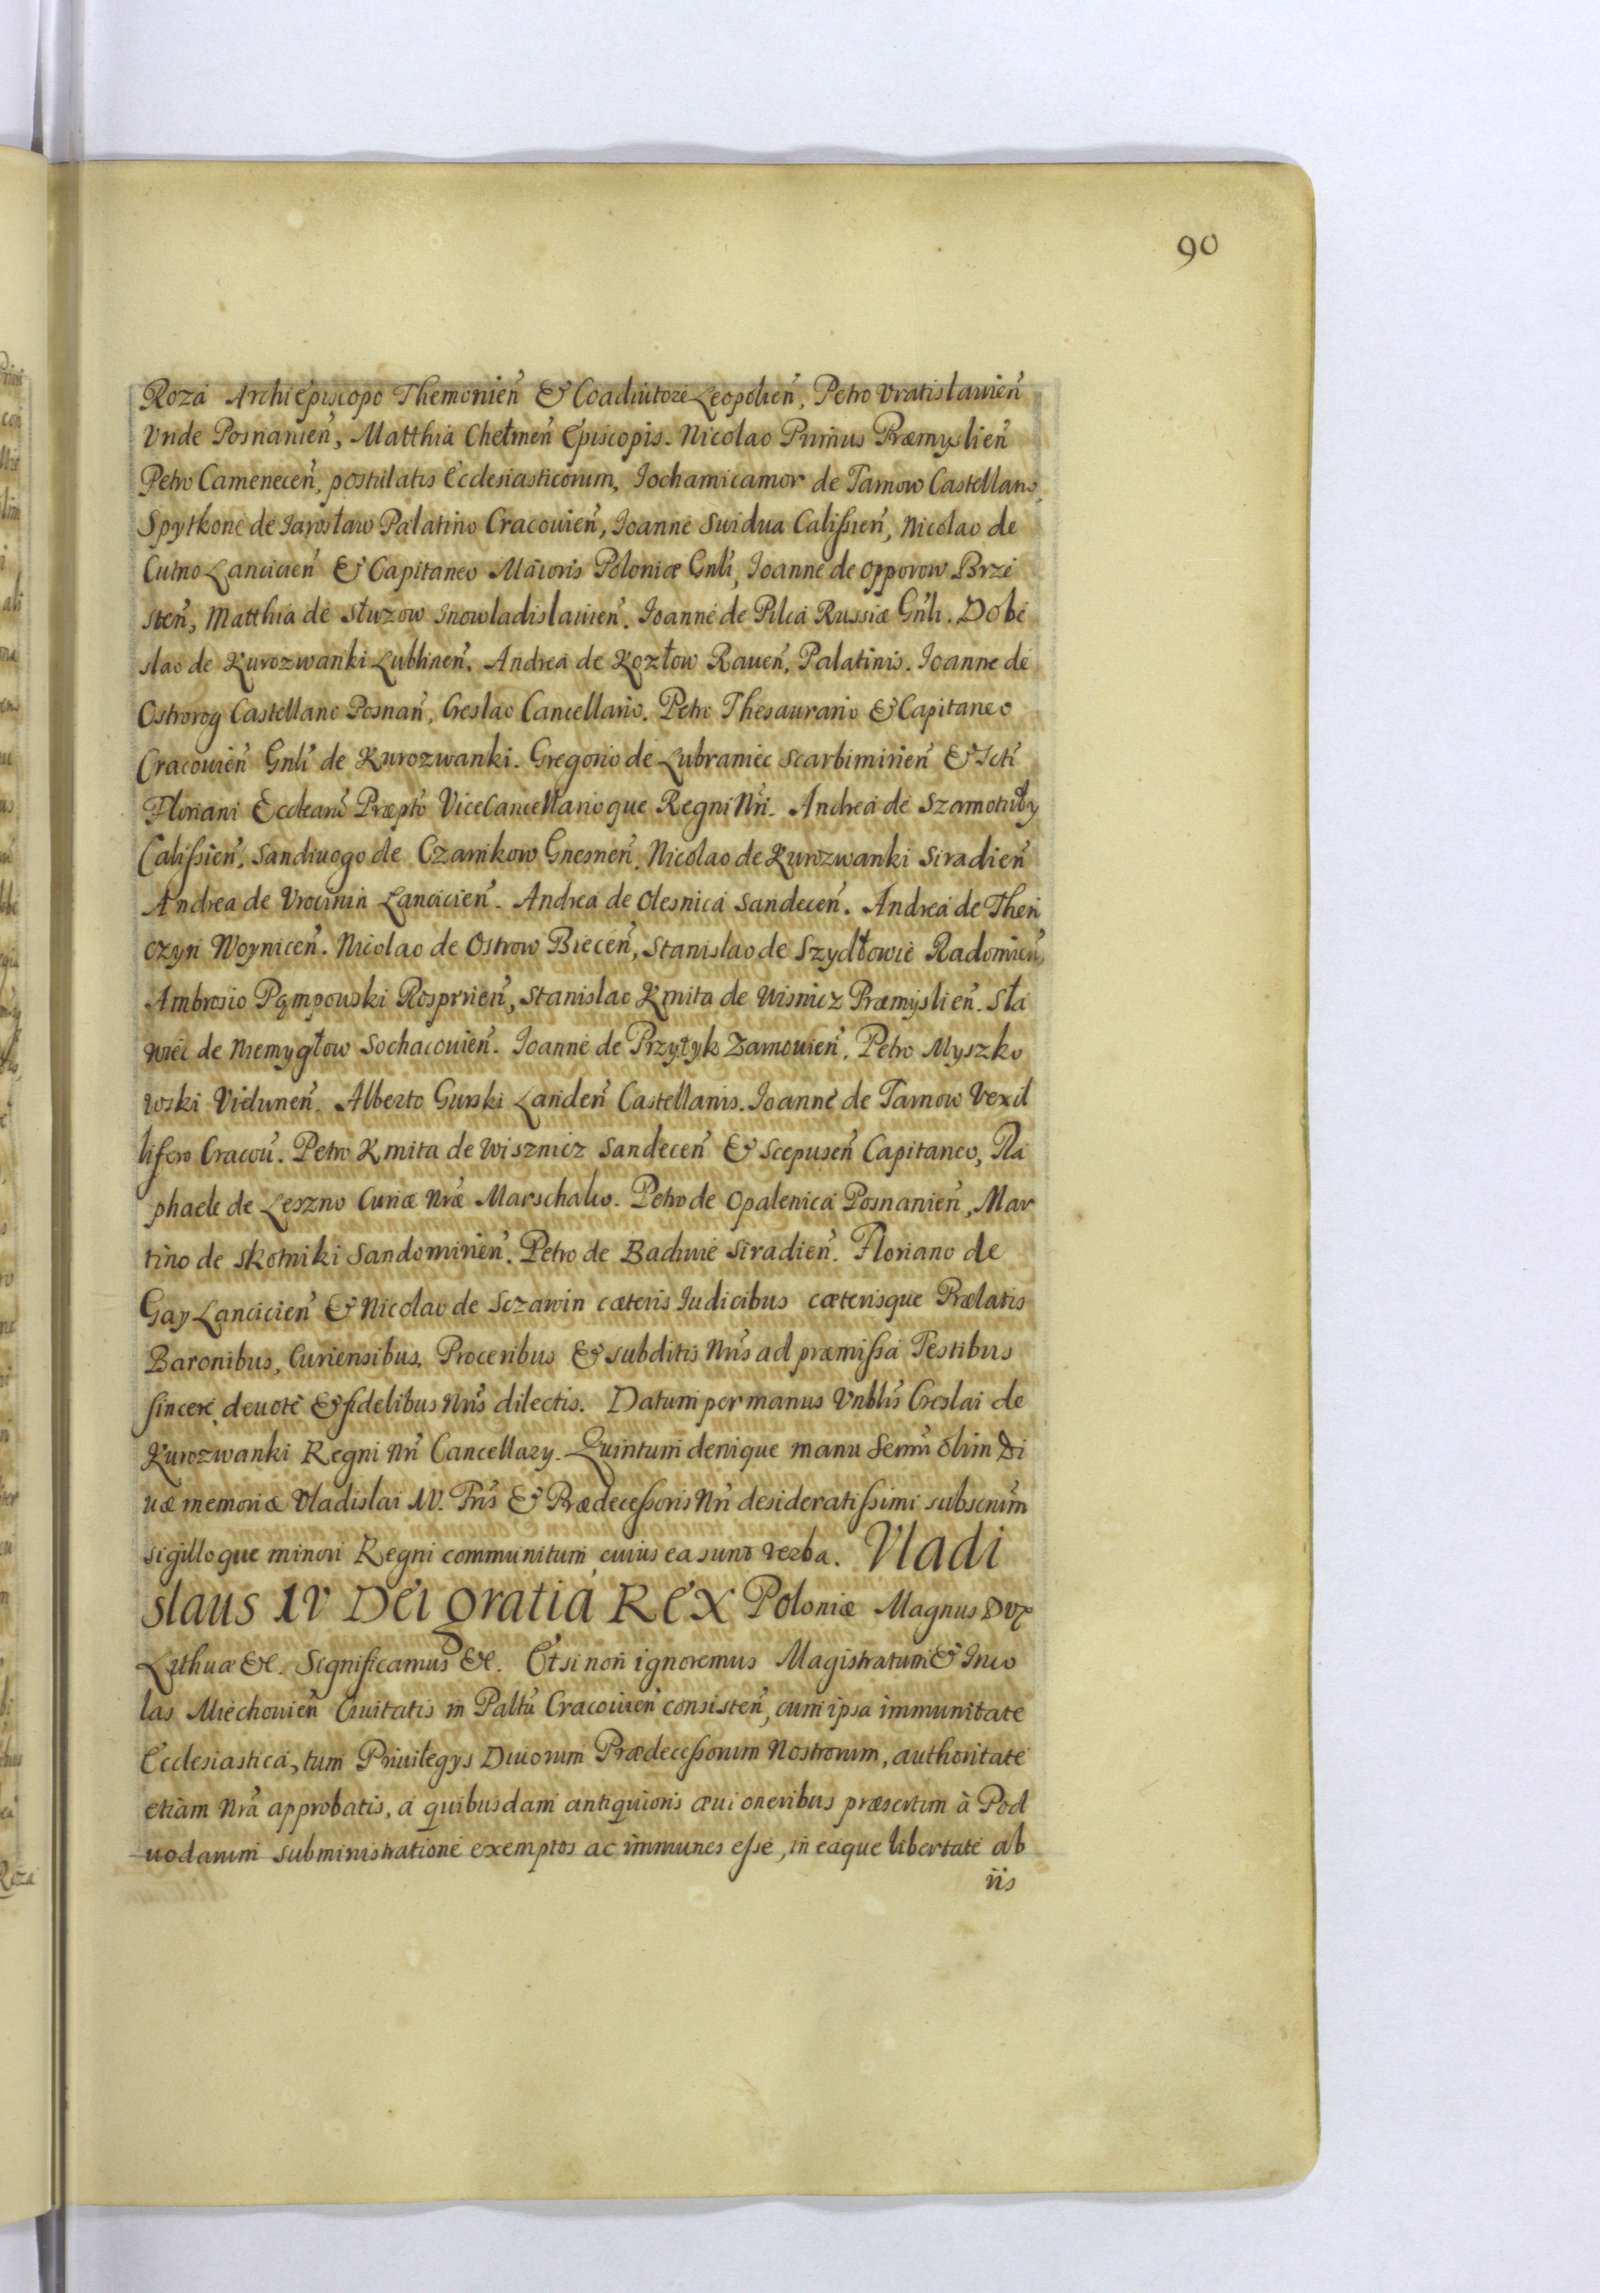 90
Roza ArchiEpiscopo Themonien̄ & Coadiutore Leopolien̄, Petro Vratislauien̄
Vnde Posnanien̄, Matthia Chełmen̄ Episcopis. Nicolao Primus Præmyslien̄
Petro Camenecen̄, postulatis Ecclesiasticorum, Jochamicamor de Tarnow Castellano,
Spytkone de Iarosław Palatino Cracouien̄, Joanne Swidua Calißien̄, Nicolao de
Cutno Lancicien̄ & Capitaneo Maioris Poloniæ Gnli, Joanne de Opporow Brze
sten̄, Matthia de Słuzow Inowladislauien̄. Joanne de Pilca Russiæ Gnli. Dobe
slao de Kurozwanki Lublinen̄. Andrea de Kozłow Rauen̄, Palatinis. Joanne de
Ostrorog Castellano Posnan̄, Creslao Cancellario. Petro Thesaurario & Capitaneo
Cracouien̄ Gnli de Kurozwanki. Gregorio de Lubraniec Scarbimirien̄ & Scti
Floriani Ecclearū Præpto ViceCancellarioque Regni Nri. Andrea de Szamotuły
Calißien̄, Sandiuogo de Czarnikow Gnesnen̄. Nicolao de Kurozwanki Siradien̄
Andrea de Vrocinin Lancicien̄. Andrea de Olesnica Sandecen̄. Andrea de Then
czyn Woynicen̄. Nicolao de Ostrow Biecen̄, Stanislao de Szydłowie Radomien̄,
Ambrosio Pąmpowski Rosprrien̄, Stanislao Kmita de Wisnicz Præmyslien̄. Sła
wiec de Niemygłow Sochacouien̄. Joanne de Przytyk Zarnouien̄. Petro Myszko
wski Vielunen̄. Alberto Gurski Landen̄ Castellanis. Joanne de Tarnow Vexil
lifero Cracou̅. Petro Kmita de Wisznicz Sandecen̄ & Scepusen̄ Capitaneo, Ra
phaele de Leszno Curiæ Nræ Marschalco. Petro de Opalenica Posnanien̄, Mar
tino de Skotniki Sandomirien̄. Petro de Badwie Siradien̄. Floriano de
Gay Lancicien̄ & Nicolao de Sczawin cæteris Iudicibus cæterisque Prælatis
Baronibus, Curiensibus, Proceribus & subditis Nris ad præmißa Testibus
sincere, deuote & fidelibus Nris dilectis. Datum per manus Vnblis Creslai de
Kurozwanki Regni Nri Cancellary. Quintum denique manu Sermi olim Di
uæ memoriæ Vladislai IV. Fris & Prædeceßoris Nri desideratißimi subscrium
sigilloque minori Regni communitum, cuius ea sunt verba. Vladi
slaus IV Dei gratia REX Poloniæ Magnus Dux
Lithuæ &c. Significamus &c. Etsi non ignoremus Magistratum & Inco
las Miechouien̄ Ciuitatis in Paltu Cracouien̄ consisten̄, cum ipsa immunitate
Ecclesiastica, tum Priuilegys Diuorum Prædeceßorum Nostrorum, authoritate
etiam Nra approbatis, a quibusdam antiquioris æui oneribus præsertim à Pod
uodarum subministratione exemptos ac immunes eße, in eaque libertate ab
iis